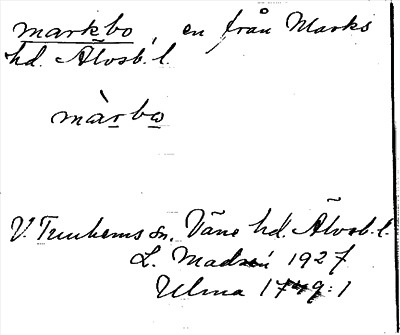 markbo, en från Marks
hd. Älvsb. l.
màrbo
V. Tunhems sn. Väne hd. Älvsb. l.
L. Madsén 1927
Ulma 1749:1